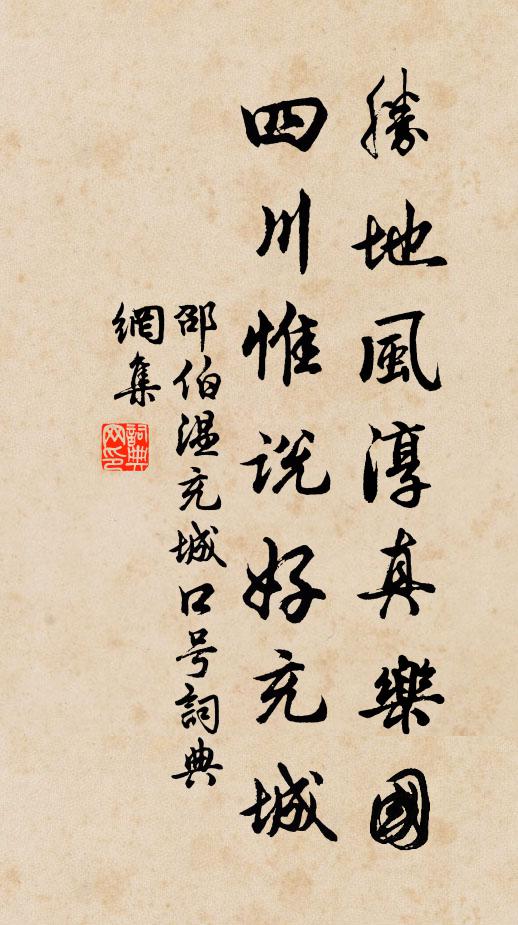 勝地風淳真樂國
四川惟説好充城
邵伯溫充城口号詞典
網集
詞典
网印